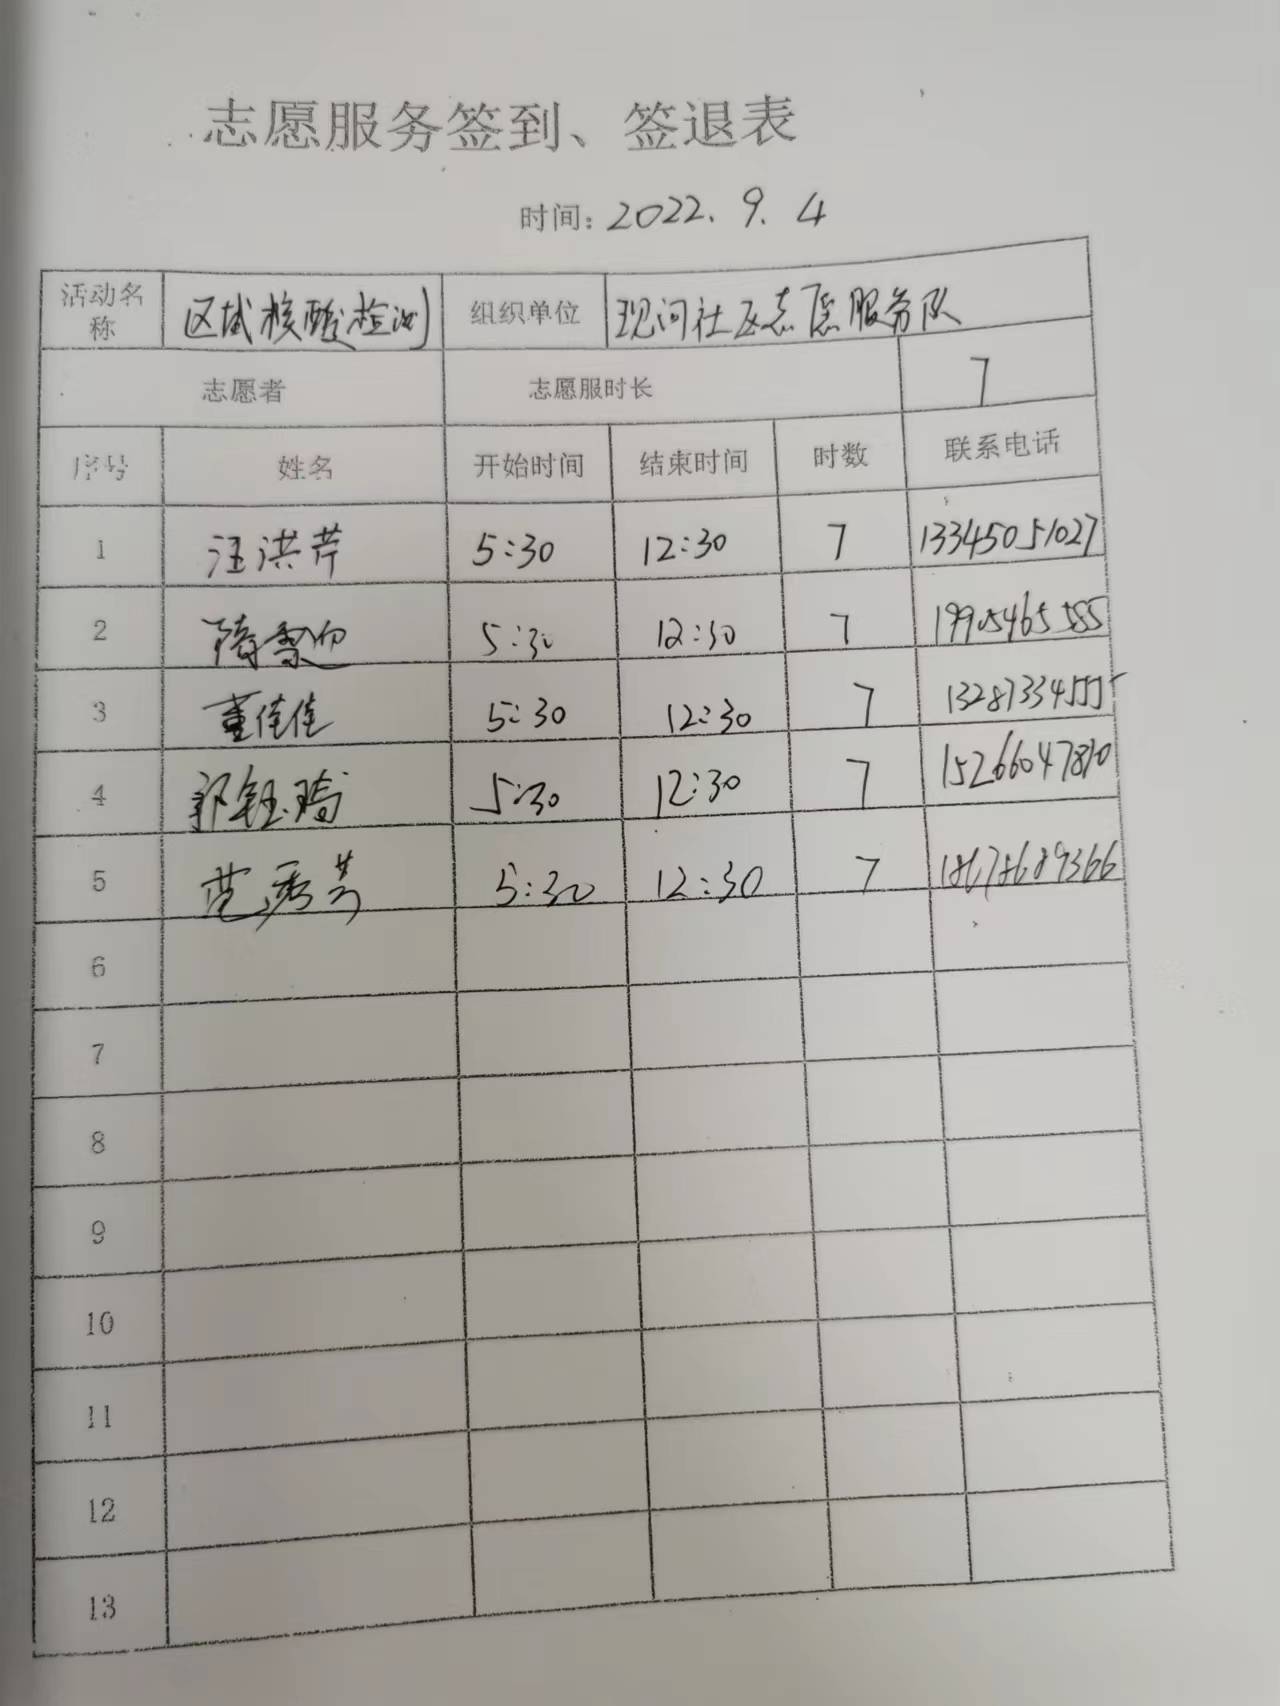 志愿服务签到、签退表
时间: 2022.9.4
活动名称 区域核酸检测 组织单位 现河社区志愿服务队
志愿者 志愿服时长 7
序号 姓名 开始时间 结束时间 时数 联系电话
1 汪洪芹 5:30 12:30 7 13345051027
2 5:30 12:30 7 19905465585
3 董佳佳 5:30 12:30 7 13287334555
4 郭钰琦 5:30 12:30 7 15266047810
5 范秀芳 5:30 12:30 7 18678689366
6
7
8
9
10
11
12
13